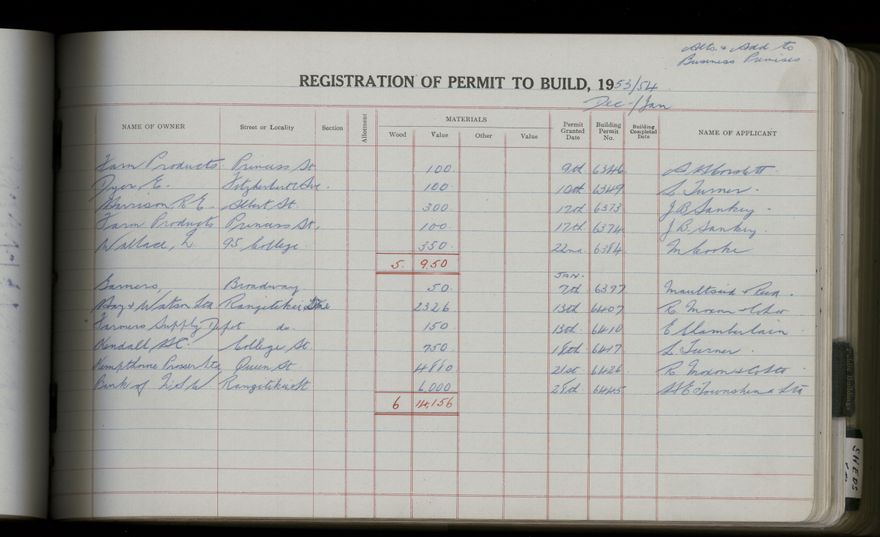 Alts. & Add to
Business Premises
REGISTRATION OF PERMIT TO BUILD, 1953/54
Dec - / Jan
NAME OF OWNER Street or Locality Section Allotment MATERIALS Permit Granted Date Building Permit No. Building Completed Date NAME OF APPLICANT
Wood Value Other Value
Farm Products Princess St 100. 9th 6346
Dyer E. Fitzherbert Ave. 100. 10th 6349 L. Turner.
Harrison R E Albert St. 300. 17th 6373 J B Sankey.
Farm Products Princess St. 100. 17th 6374 J B Sankey.
Wallace, L 95 College. 350. 22nd 6384 M Cooke
5. 950
JAN.
Broadway 50. 7th 6397
& Watson Ltd Rangitikei Line 2326 13th 6407
Farmers Supply Depot do. 150. 13th 6410 E Chamberlain
Kendall College St. 750. 18th 6417 L. Turner.
Kempthorne Prosser Ltd Queen St. 4880 21st 6426
Bank of N.S.W Rangitikei St 6,000 28th 6445 Townshend Ltd
6 14,156
SHEDS